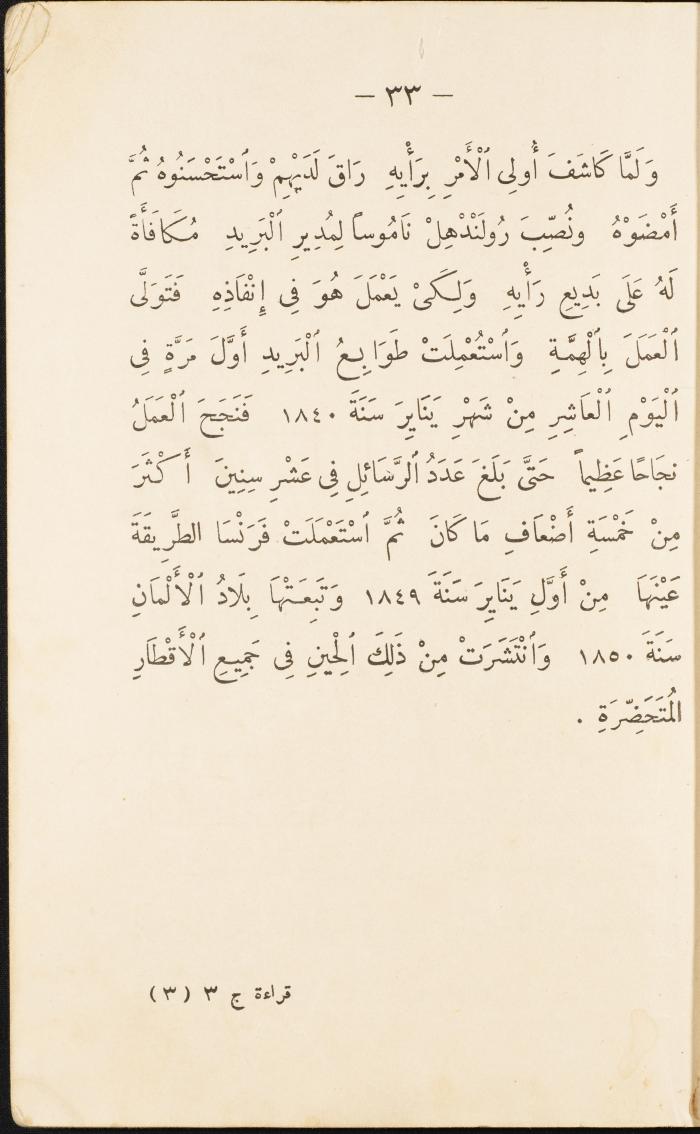 — ٣٣ —
وَلَمَّا كَاشَفَ أُولِى ٱلْأَمْرِ بِرَأْيِهِ رَاقَ لَدَيْهِمْ وَٱسْتَحْسَنُوهُ ثُمَّ
أَمْضَوْهُ ونُصِّبَ رُولَنْدْهِلْ نَامُوساً لِمُدِيرِ ٱلْبَرِيدِ مُكَافَأَةً
لَهُ عَلَى بَدِيعِ رَأْيِهِ وَلِكَىْ يَعْمَلَ هُوَ فِى إِنْفَاذِهِ فَتَوَلَّى
ٱلْعَمَلَ بِٱلْهِمَّةِ وَٱسْتُعْمِلَتْ طَوَابِعُ ٱلْبَرِيدِ أَوَّلَ مَرَّةٍ فِى
ٱلْيَوْمِ ٱلْعَاشِرِ مِنْ شَهْرِ يَنَايِرَ سَنَةَ ١٨٤٠ فَنَجَحَ ٱلْعَمَلُ
نجَاحًا عَظِيماً حَتَّى بَلَغَ عَدَدُ ٱلرَّسَائِلِ فِى عَشْرِ سِنِينَ أَكْثَرَ
مِنْ خَمْسَةِ أَضْعَافِ مَا كَانَ ثُمَّ ٱسْتَعْمَلَتْ فَرَنْسَا الطَّرِيقَةَ
عَيْنَهَا مِنْ أَوَّلِ يَنَايِرَ سَنَةَ ١٨٤٩ وَتَبِعَتْهَا بِلَادُ ٱلْأَلْمَانِ
سَنَةَ ١٨٥٠ وَٱنْتَشَرَتْ مِنْ ذَلِكَ ٱلْحِينِ فِى جَمِيعِ ٱلْأَقْطَارِ
الْمُتَحَضِّرَةِ .
قراءة ج ٣ (٣)